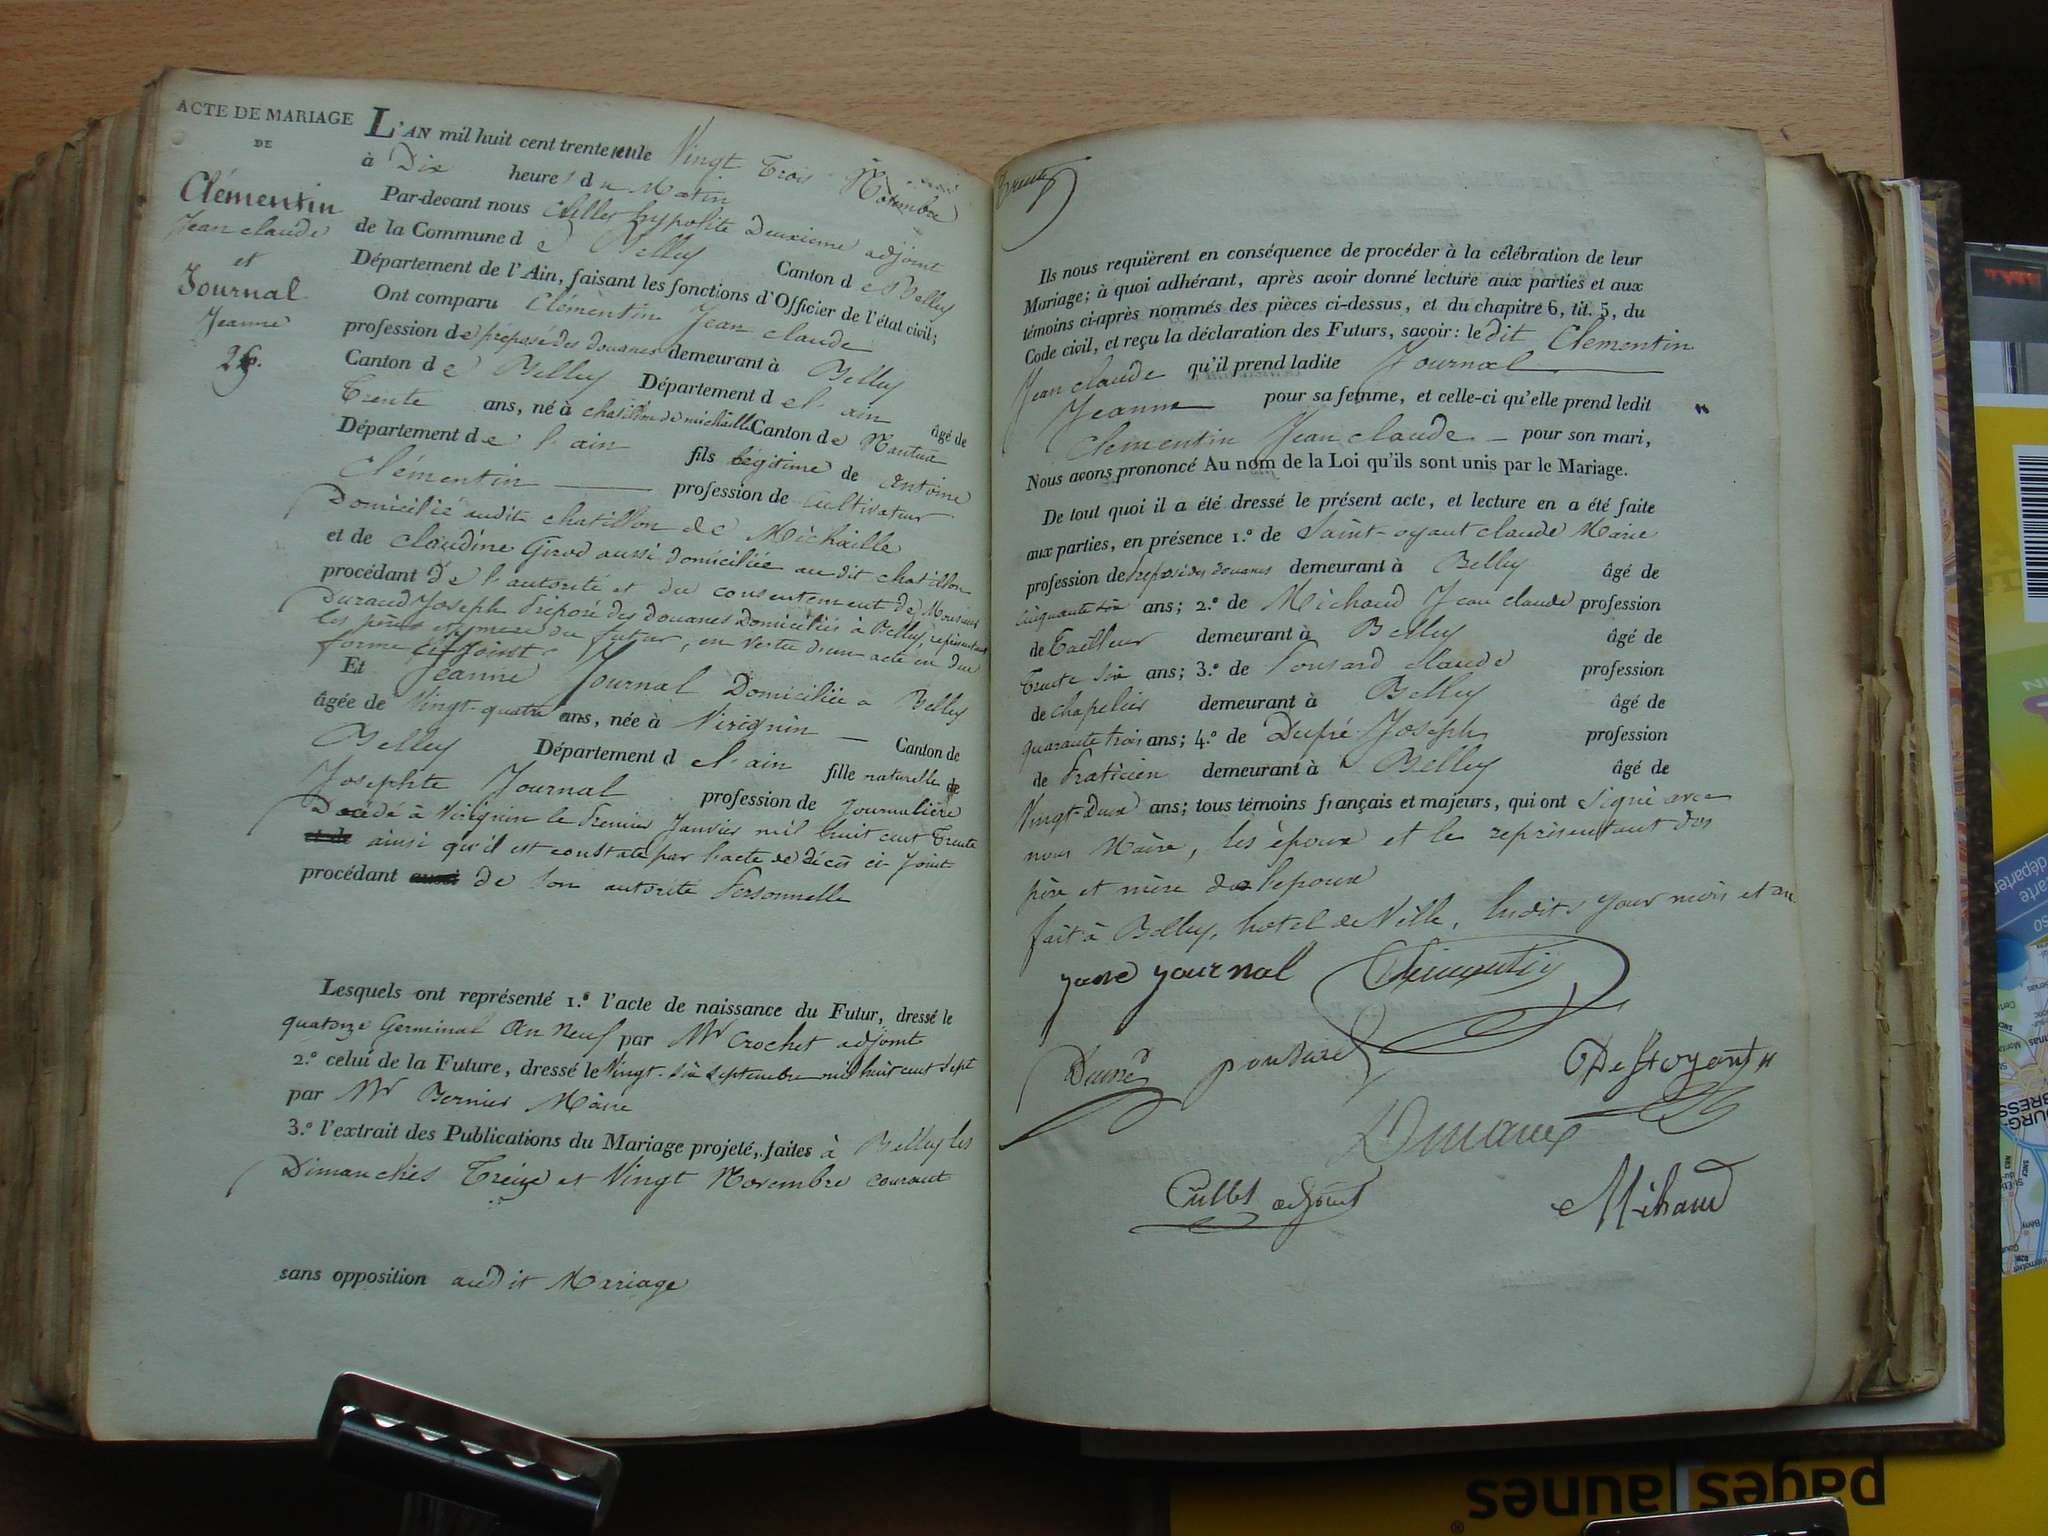 ACTE DE MARIAGE
DE
Clémentin
Jean claude
et
Journal
Jeanne
L'AN mil huit cent trente un le Vingt Trois Novembre
à Dix heures du Matin
Par-devant nous hypolite Deuxieme adjoint
de la Commune de Belley Canton de Belley
Département de l'Ain, faisant les fonctions d'Officier de l'état civil;
Ont comparu Clémentin Jean claude
profession de préposé des douanes demeurant à Belley
Canton de Belley Département de l'ain âgé de
Trente ans, né à chatillon de michaille Canton de Nantua
Département de l'ain fils légitime de Antoine
Clémentin profession de cultivateur
Domicilié audit chatillon de Michaille
et de claudine Girod aussi domiciliée audit chatillon
procédant de l'autorité et du consentement de Monsieur
Durand Joseph Préposé des douanes Domicilié à Belley
les père et mere du futur, en vertu d'un acte en due
forme ci Joint.
Et Jeanne Journal Domiciliée a Belley
âgée de Vingt-quatre ans, née à Virignin Canton de
Belley Département de l'ain fille naturelle de
Josephte Journal profession de Journalière
Décédé à Virignin le Premier Janvier mil huit cent Trente
ainsi qu'il est constaté par l'acte de décès ci Joint
procédant de son autorité Personnelle
Lesquels ont représenté 1.º l'acte de naissance du Futur, dressé le
quatorze Germinal An Neuf par Mr Crochet adjoint
2.º celui de la Future, dressé le Vingt-six septembre mil huit cent sept
par Mr Bernier Maire
3.º l'extrait des Publications du Mariage projeté, faites à Belley les
Dimanches Treize et Vingt Novembre courant
sans opposition audit Mariage
Ils nous requièrent en conséquence de procéder à la célébration de leur
Mariage; à quoi adhérant, après avoir donné lecture aux parties et aux
témoins ci-après nommés des pièces ci-dessus, et du chapitre 6, tit. 5, du
Code civil, et reçu la déclaration des Futurs, savoir: le dit Clementin
Jean claude qu'il prend ladite Journal
Jeanne pour sa femme, et celle-ci qu'elle prend ledit
Clementin Jean claude pour son mari,
Nous avons prononcé Au nom de la Loi qu'ils sont unis par le Mariage.
De tout quoi il a été dressé le présent acte, et lecture en a été faite
aux parties, en présence 1.º de Saint-oyant claude Marie
profession de Preposé des douanes demeurant à Belley âgé de
cinquante six ans; 2.º de Michaud Jean claude profession
de Tailleur demeurant à Belley âgé de
Trente Six ans; 3.º de Ponsard Claude profession
de chapelier demeurant à Belley âgé de
quarante trois ans; 4.º de Dupré Joseph profession
de Praticien demeurant à Belley âgé de
Vingt-Deux ans; tous témoins français et majeurs, qui ont signé avec
nous Maire, les époux et le représentant des
père et mère de l'epoux
fait à Belley, hotel de Ville, lesdits jour mois et an
jane journal Clementin
ponsard DeStoyant
Durand
Cullet adjoint Mihaud
pages jaunes